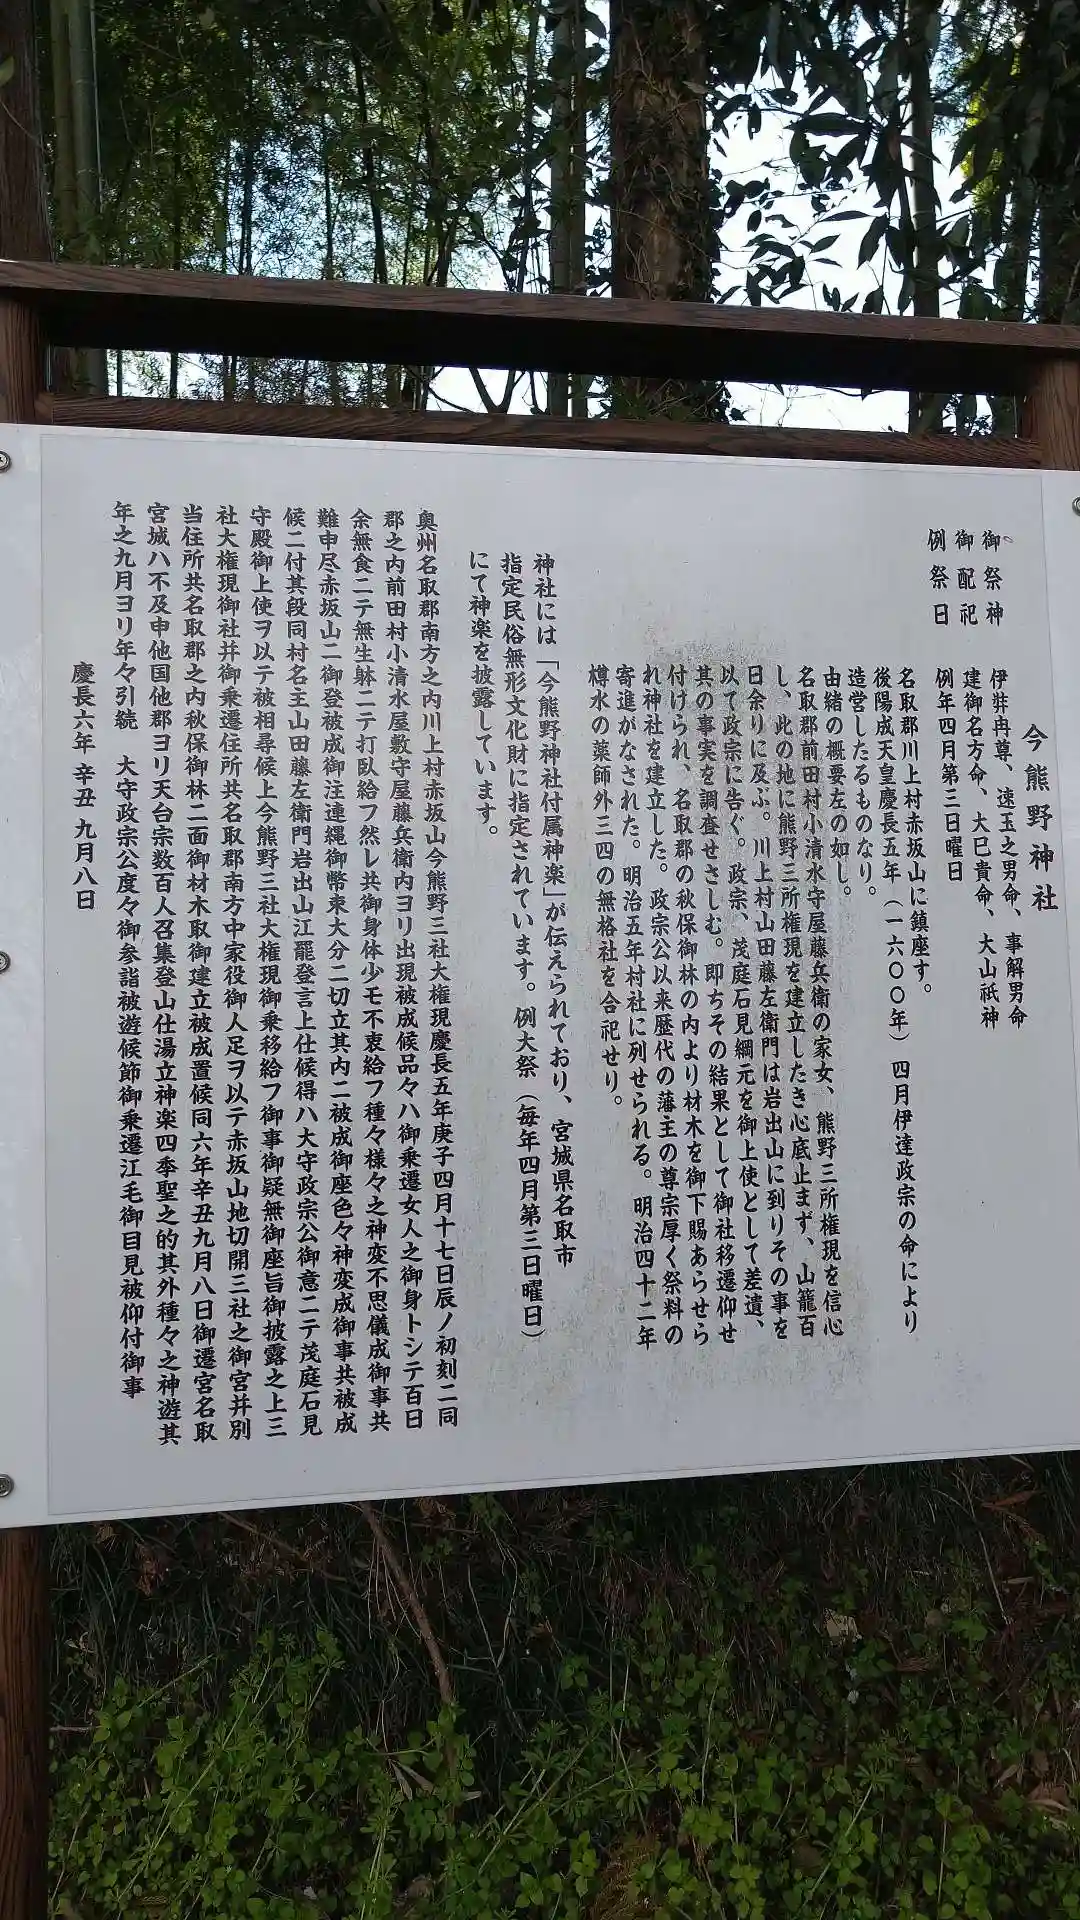 今熊野神社
御祭神　伊弉冉尊、速玉之男命、事解男命
御配祀　建御名方命、大巳貴命、大山祇神
例祭日　例年四月第三日曜日
名取郡川上村赤坂山に鎮座す。
後陽成天皇慶長五年（一六〇〇年）四月伊達政宗の命により
造営したるものなり。
由緒の概要左の如し。
名取郡前田村小清水守屋藤兵衛の家女、熊野三所権現を信心
し、此の地に熊野三所権現を建立したき心底止まず、山籠百
日余りに及ぶ。川上村山田藤左衛門は岩出山に到りその事を
以て政宗に告ぐ。政宗、茂庭石見綱元を御上使として差遺、
其の事実を調査せさしむ。即ちその結果として御社移遷仰せ
付けられ、名取郡の秋保御林の内より材木を御下賜あらせら
れ神社を建立した。政宗公以来歴代の藩主の尊宗厚く祭料の
寄進がなされた。明治五年村社に列せられる。明治四十二年
樽水の薬師外三四の無格社を合祀せり。
神社には「今熊野神社付属神楽」が伝えられており、宮城県名取市
指定民俗無形文化財に指定されています。例大祭（毎年四月第三日曜日）
にて神楽を披露しています。
奥州名取郡南方之内川上村赤坂山今熊野三社大権現慶長五年庚子四月十七日辰ノ初刻二同
郡之内前田村小清水屋敷守屋藤兵衛内ヨリ出現被成候品々ハ御乗遷女人之御身トシテ百日
余無食二テ無生躰二テ打臥給フ然レ共御身体少モ不衷給フ種々様々之神変不思儀成御事共
難申尽赤坂山二御登被成御注連縄御幣束大分二切立其内二被成御座色々神変成御事共被成
候二付其段同村名主山田藤左衛門岩出山江罷登言上仕候得ハ大守政宗公御意二テ茂庭石見
守殿御上使ヲ以テ被相尋候上今熊野三社大権現御乗移給フ御事御疑無御座旨御披露之上三
社大権現御社井御乗遷住所共名取郡南方中家役御人足ヲ以テ赤坂山地切開三社之御宮井別
当住所共名取郡之内秋保御林二面御材木取御建立被成置候同六年辛丑九月八日御遷宮名取
宮城ハ不及申他国他郡ヨリ天台宗数百人召集登山仕湯立神楽四季聖之的其外種々之神遊其
年之九月ヨリ年々引続　大守政宗公度々御参詣被遊候節御乗遷江毛御目見被仰付御事
慶長六年 辛丑 九月八日